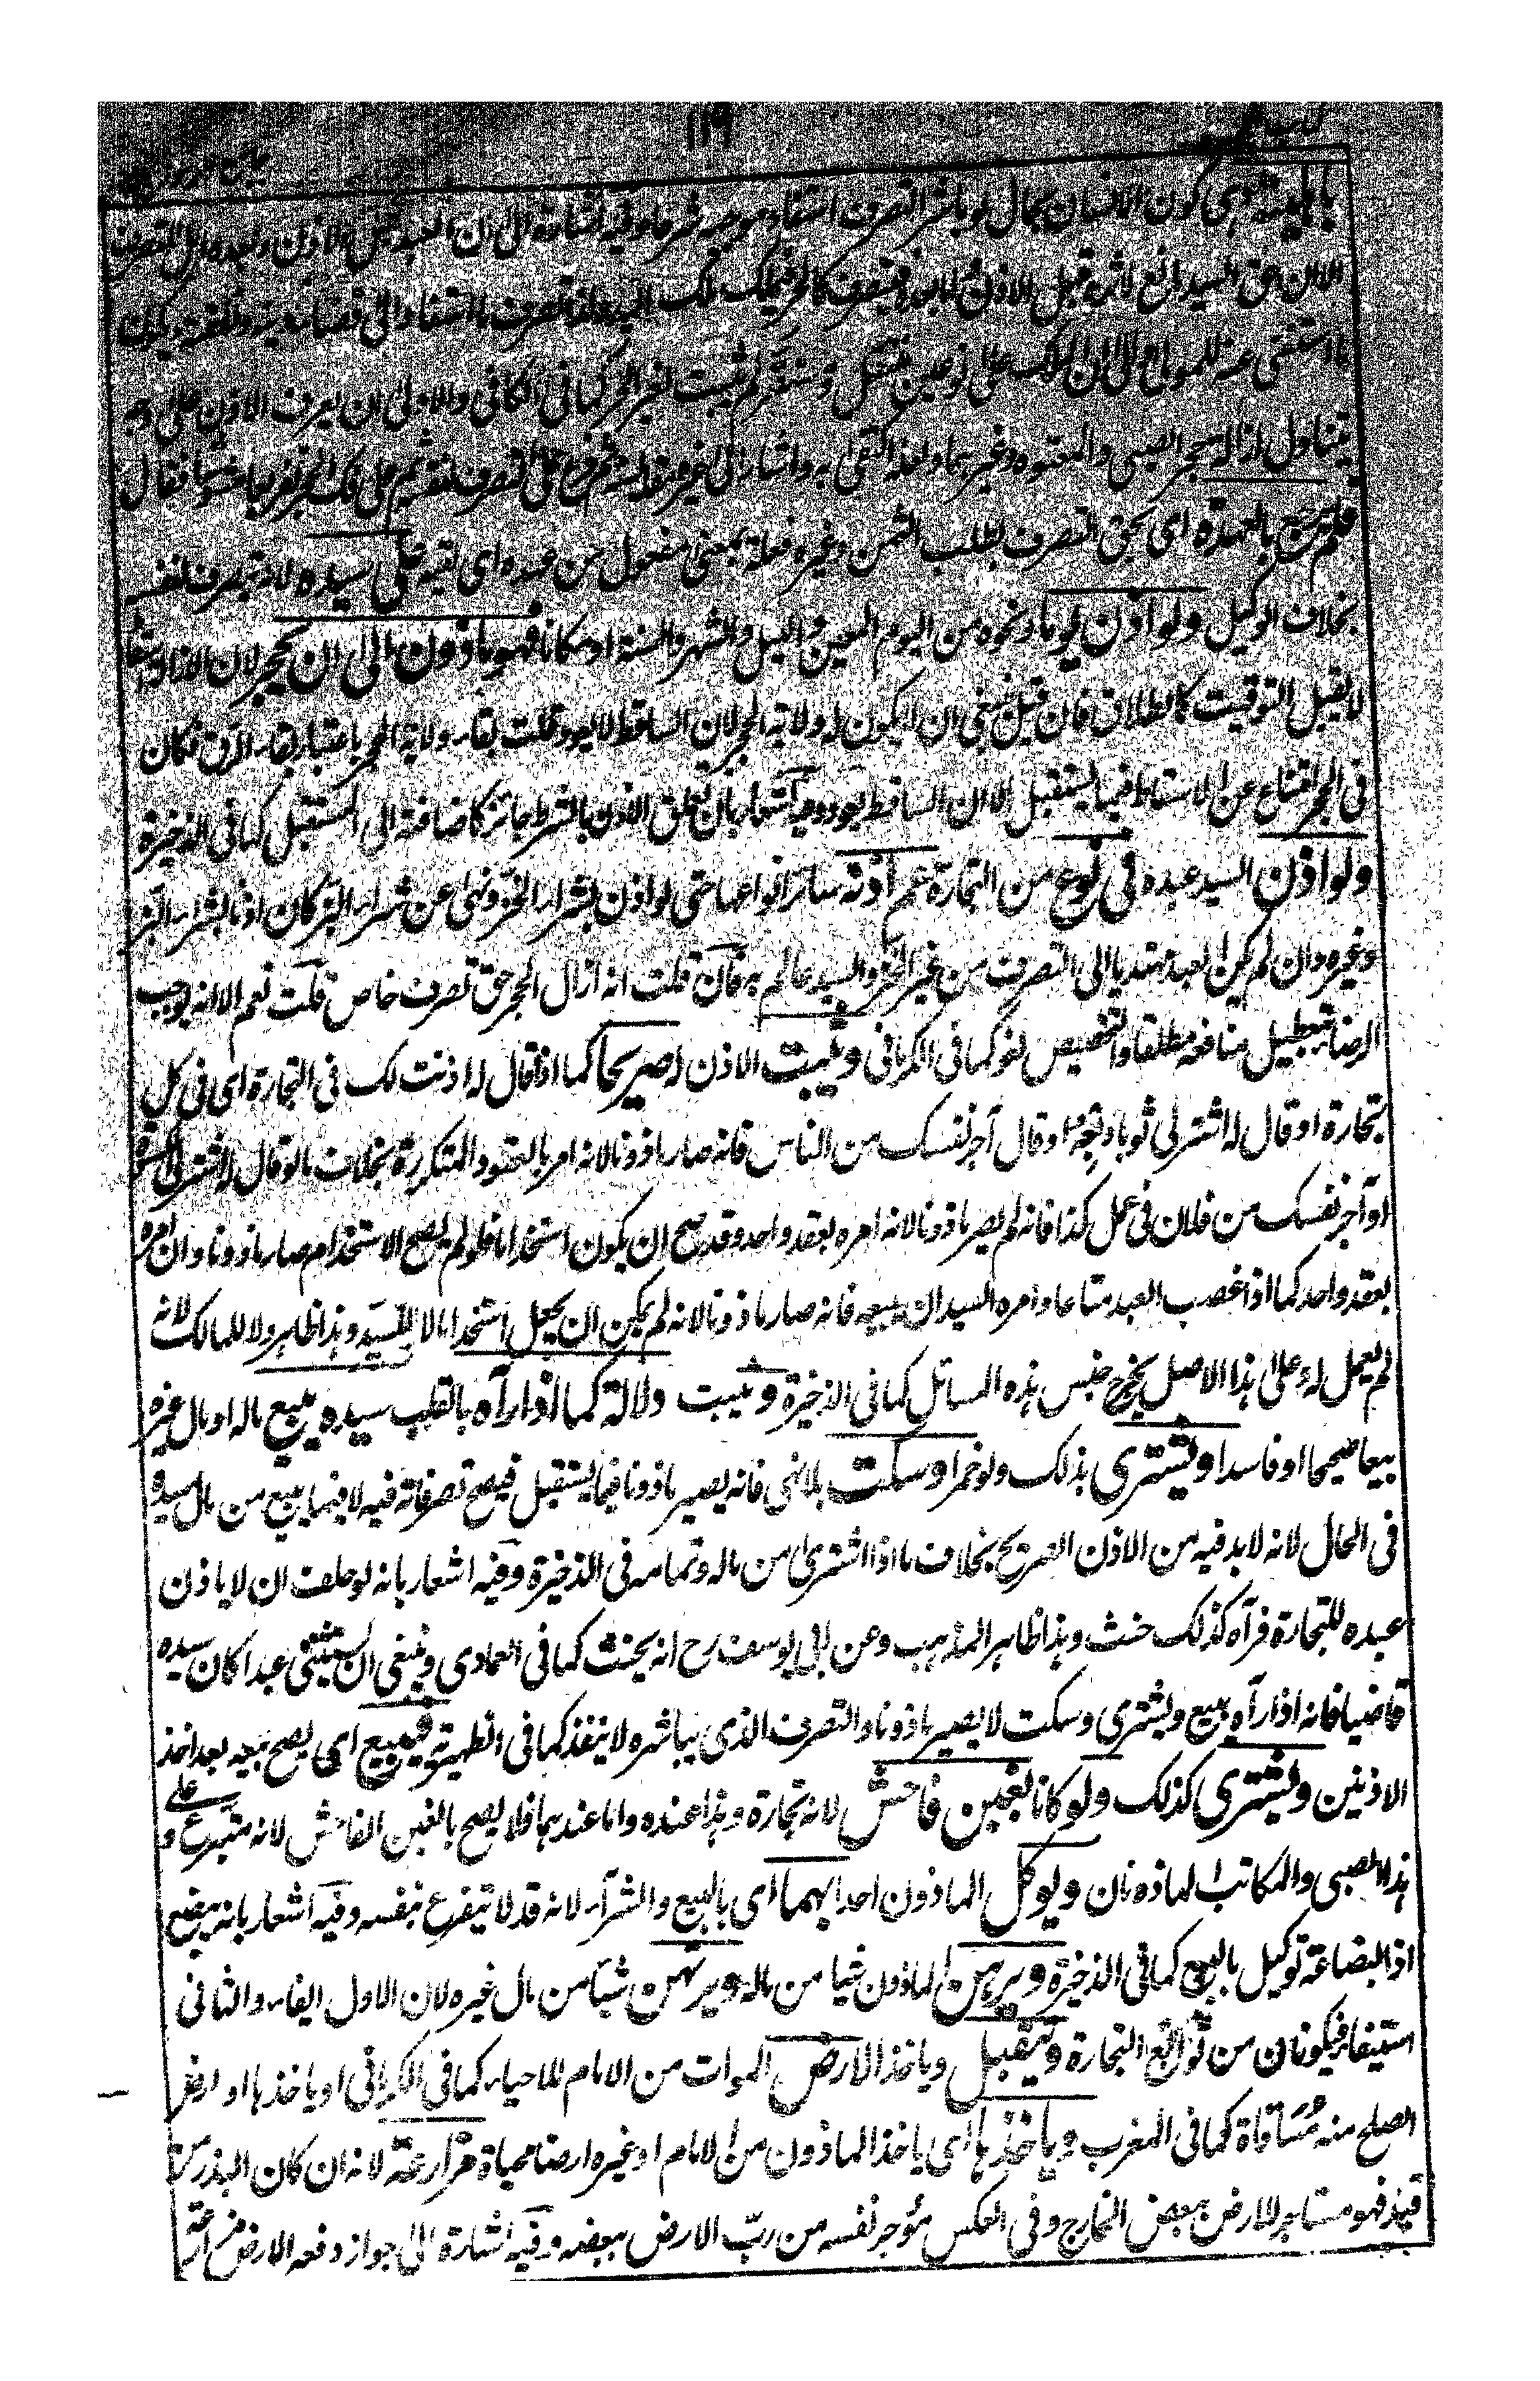 ١١٩
بالاهلية وهى كون الانسان بحال لو باشر التصرف استفاد موجبه شرعا وفيه اشارة الى ان العبد قبل الاذن وبعده اهل للتصرف
الا ان حق السيد مانع لاثره قبل الاذن
ما استغنى عنه للمولى الى ان الملك على نوعين منتقل ومستقر لم يثبت لغير الحر كما فى الكافى والاولى ان يعرف الاذن على وجه
يتناول ازالة حجر الصبى والمعتوه وغيرهما ولعله اكتفى به واشار الى ثم فرع على التصرف لنفسه ثم على فك الحجر فقال
فلم يرجع بالعهدة اى بحق التصرف بطلب الثمن وغيره فعلة بمعنى مفعول من عهده اى لقيه على سيده لانه تصرف لنفسه
بخلاف الوكيل ولو اذن يوما ونحوه من اليوم المعين والليل والشهر والسنة او مكانا فهو ماذون الى ان يحجر لان الاذن اسقاط
لا يقبل التوقيت كالطلاق فان قيل ينبغى ان لا يكون له ولاية الحجر لان الساقط لا يعود قلت بقاء ولاية الحجر باعتبار بقاء الرق فكان
فى الحجر امتناع عن الاسقاط فيما يستقبل لا ان الساقط يعود وفيه اشعار بان تعلق الاذن بالشرط جائز كاضافته الى المستقبل كما فى الذخيرة
ولو اذن السيد عبده فى نوع من التجارة عم اذنه سائر انواعها حتى لو اذن بشراء الخز ونهى عن شراء البز كان اذنا بشراء البز
وغيره وان لم يكن العبد مهتديا الى التصرف من غير الخز والسيد عالم به فان قلت انه ازال الحجر حق تصرف خاص قلت نعم الا انه يوجب
الرضا بتعطيل منافعه مطلقا والتخصيص لغو كما فى الكرمانى ويثبت الاذن له صريحا كما اذا قال له اذنت لك فى التجارة اى فى كل
تجارة او قال له اشتر لى ثوبا وبعه او قال آجر نفسك من الناس فانه صار ماذونا لانه امر بالعقود المتكررة بخلاف ما لو قال له اشتر لى الكسوة
او آجر نفسك من فلان فى عمل كذا فانه لم يصر ماذونا لانه امره بعقد واحد وقد صح ان يكون استخداما فلو لم يصح الاستخدام صار ماذونا وان امره
بعقد واحد كما اذا غصب العبد متاعا وامره السيد ان يبيعه فانه صار ماذونا لانه لم يمكن ان يجعل استخداما لا للسيد وهذا ظاهر ولا للمالك لانه
لم يعمل له وعلى هذا الاصل يخرج جنس هذه المسائل كما فى الذخيرة ويثبت دلالة كما اذا رآه بالقلب سيده يبيع ماله او مال غيره
بيعا صحيحا او فاسدا ويشترى بذلك ولو خمرا وسكت بلا نهى فانه يصير ماذونا فيما يستقبل فيصح تصرفاته فيه لا فيما يبيع من مال سيده
فى الحال لانه لا بد فيه من الاذن الصريح بخلاف ما اذا اشترى من ماله وتمامه فى الذخيرة وفيه اشعار بانه لو حلف ان لا ياذن
عبده للتجارة فرآه كذلك حنث وهذا ظاهر المذهب وعن ابى يوسف رح انه يحنث كما فى العمادى وينبغى ان يستثنى عبدا كان سيده
قاضيا فانه اذا رآه يبيع ويشترى وسكت لا يصير ماذونا والتصرف الذى يباشره لا ينفذ كما فى الظهيرية فيبيع اى يصح بيعه بعد احد
الاذنين ويشترى كذلك ولو كانا بغبن فاحش لانه تجارة وهذا عنده واما عندهما فلا يصح بالغبن الفاحش لانه متبرع وعلى
هذا الصبى والمكاتب الماذونان ويوكل الماذون احدا بهما اى بالبيع والشراء لانه قد لا يتفرغ بنفسه وفيه اشعار بانه يبضع
اذ البضاعة توكيل بالبيع كما فى الذخيرة ويرهن الماذون شيا من ماله ويرتهن شيئا من مال غيره لان الاول ايفاء والثانى
استيفاء فيكونان من توابع التجارة ويتقبل وياخذ الارض الموات من الامام للاحياء كما فى الكرمانى او ياخذها او ارض
الصلح منه مساقاة كما فى المغرب وياخذها اى ياخذ الماذون من الامام او غيره ارضا محياة مزارعة لانه ان كان البذر من
قبله فهو مستاجر للارض ببعض الخارج وفى العكس مؤجر نفسه من رب الارض ببعضه وفيه اشارة الى جواز دفعه الارض مزارعة